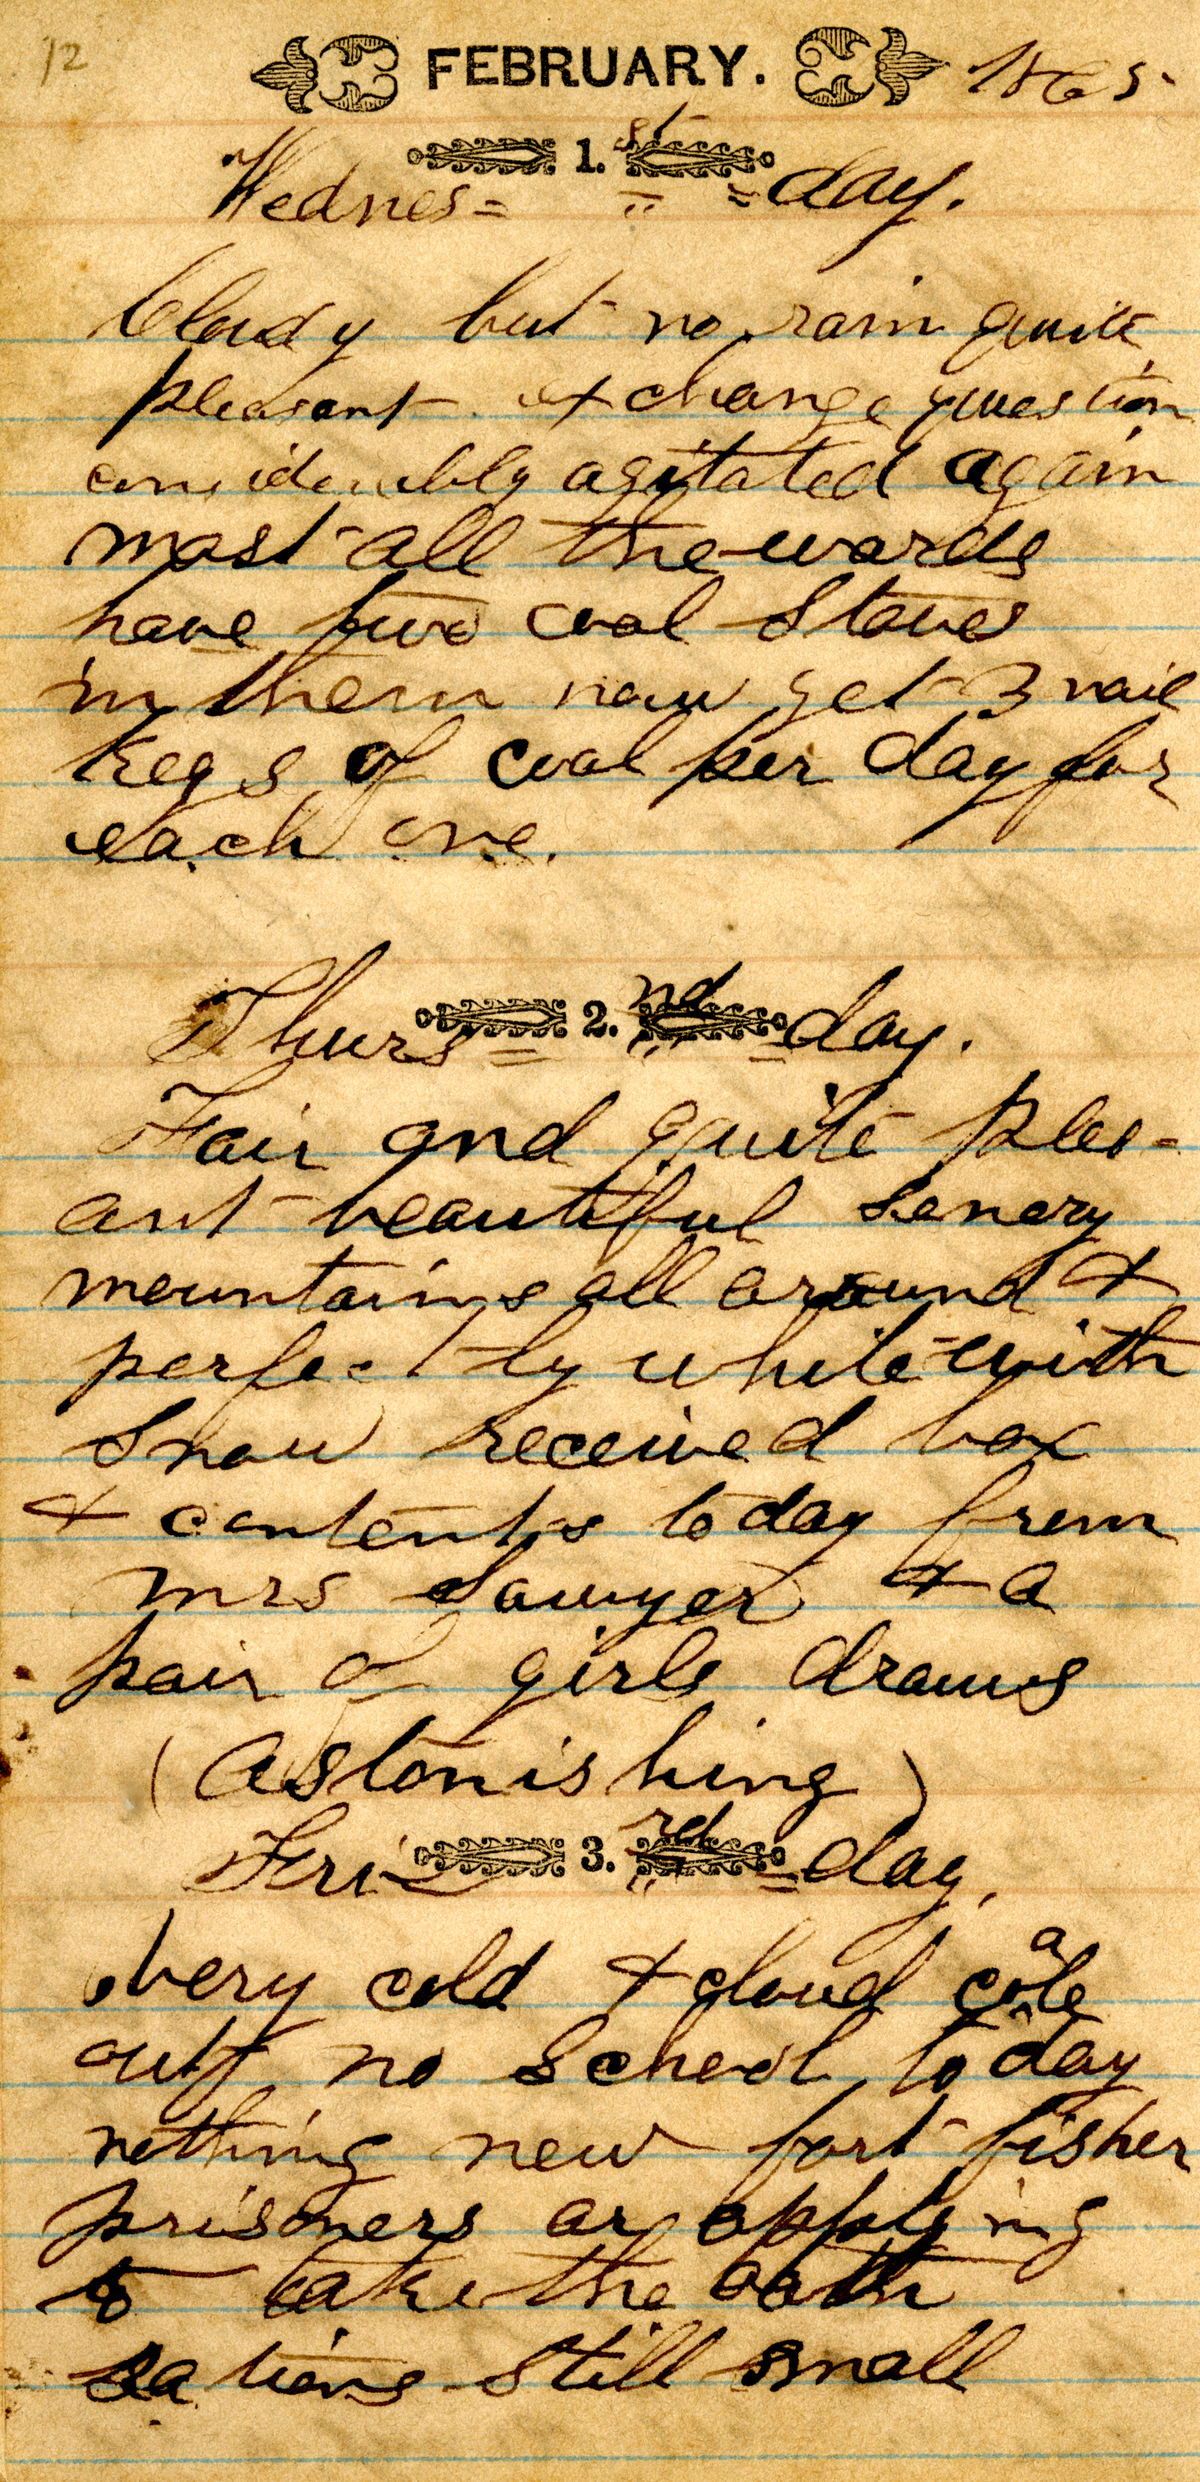 12
FEBRUARY. 1865.
1. st
Wednes= " =day.
Cloudy but no rain quite
pleasant exchange question
considerably agitated again
most all the wards
have two coal stoves
in them now get 3 nail
kegs of coal per day for
each one.
2. nd
Thurs= " =day.
Fair and quite plea=
ant beautiful senery
mountains all around &
perfectly white with
snow received box
& contents today from
mrs Sawyer & a
pair of girls draws
(Astonishing)
3. rd
Fri= " =day.
very cold & cloud
a
cole
out no school today
nothing new fort fisher
prisoners ar applying
to take the oath
rations still small